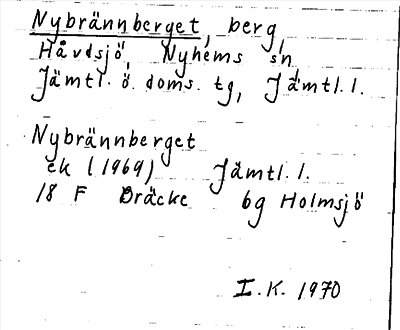 Nybrännberget, berg,
Håvdsjö, Nyhems sn,
Jämtl. ö. doms. tg, Jämtl. l.
Nybrännberget
ek (1969) Jämtl. l.
18 F Bräcke 6g Holmsjö
I.K. 1970